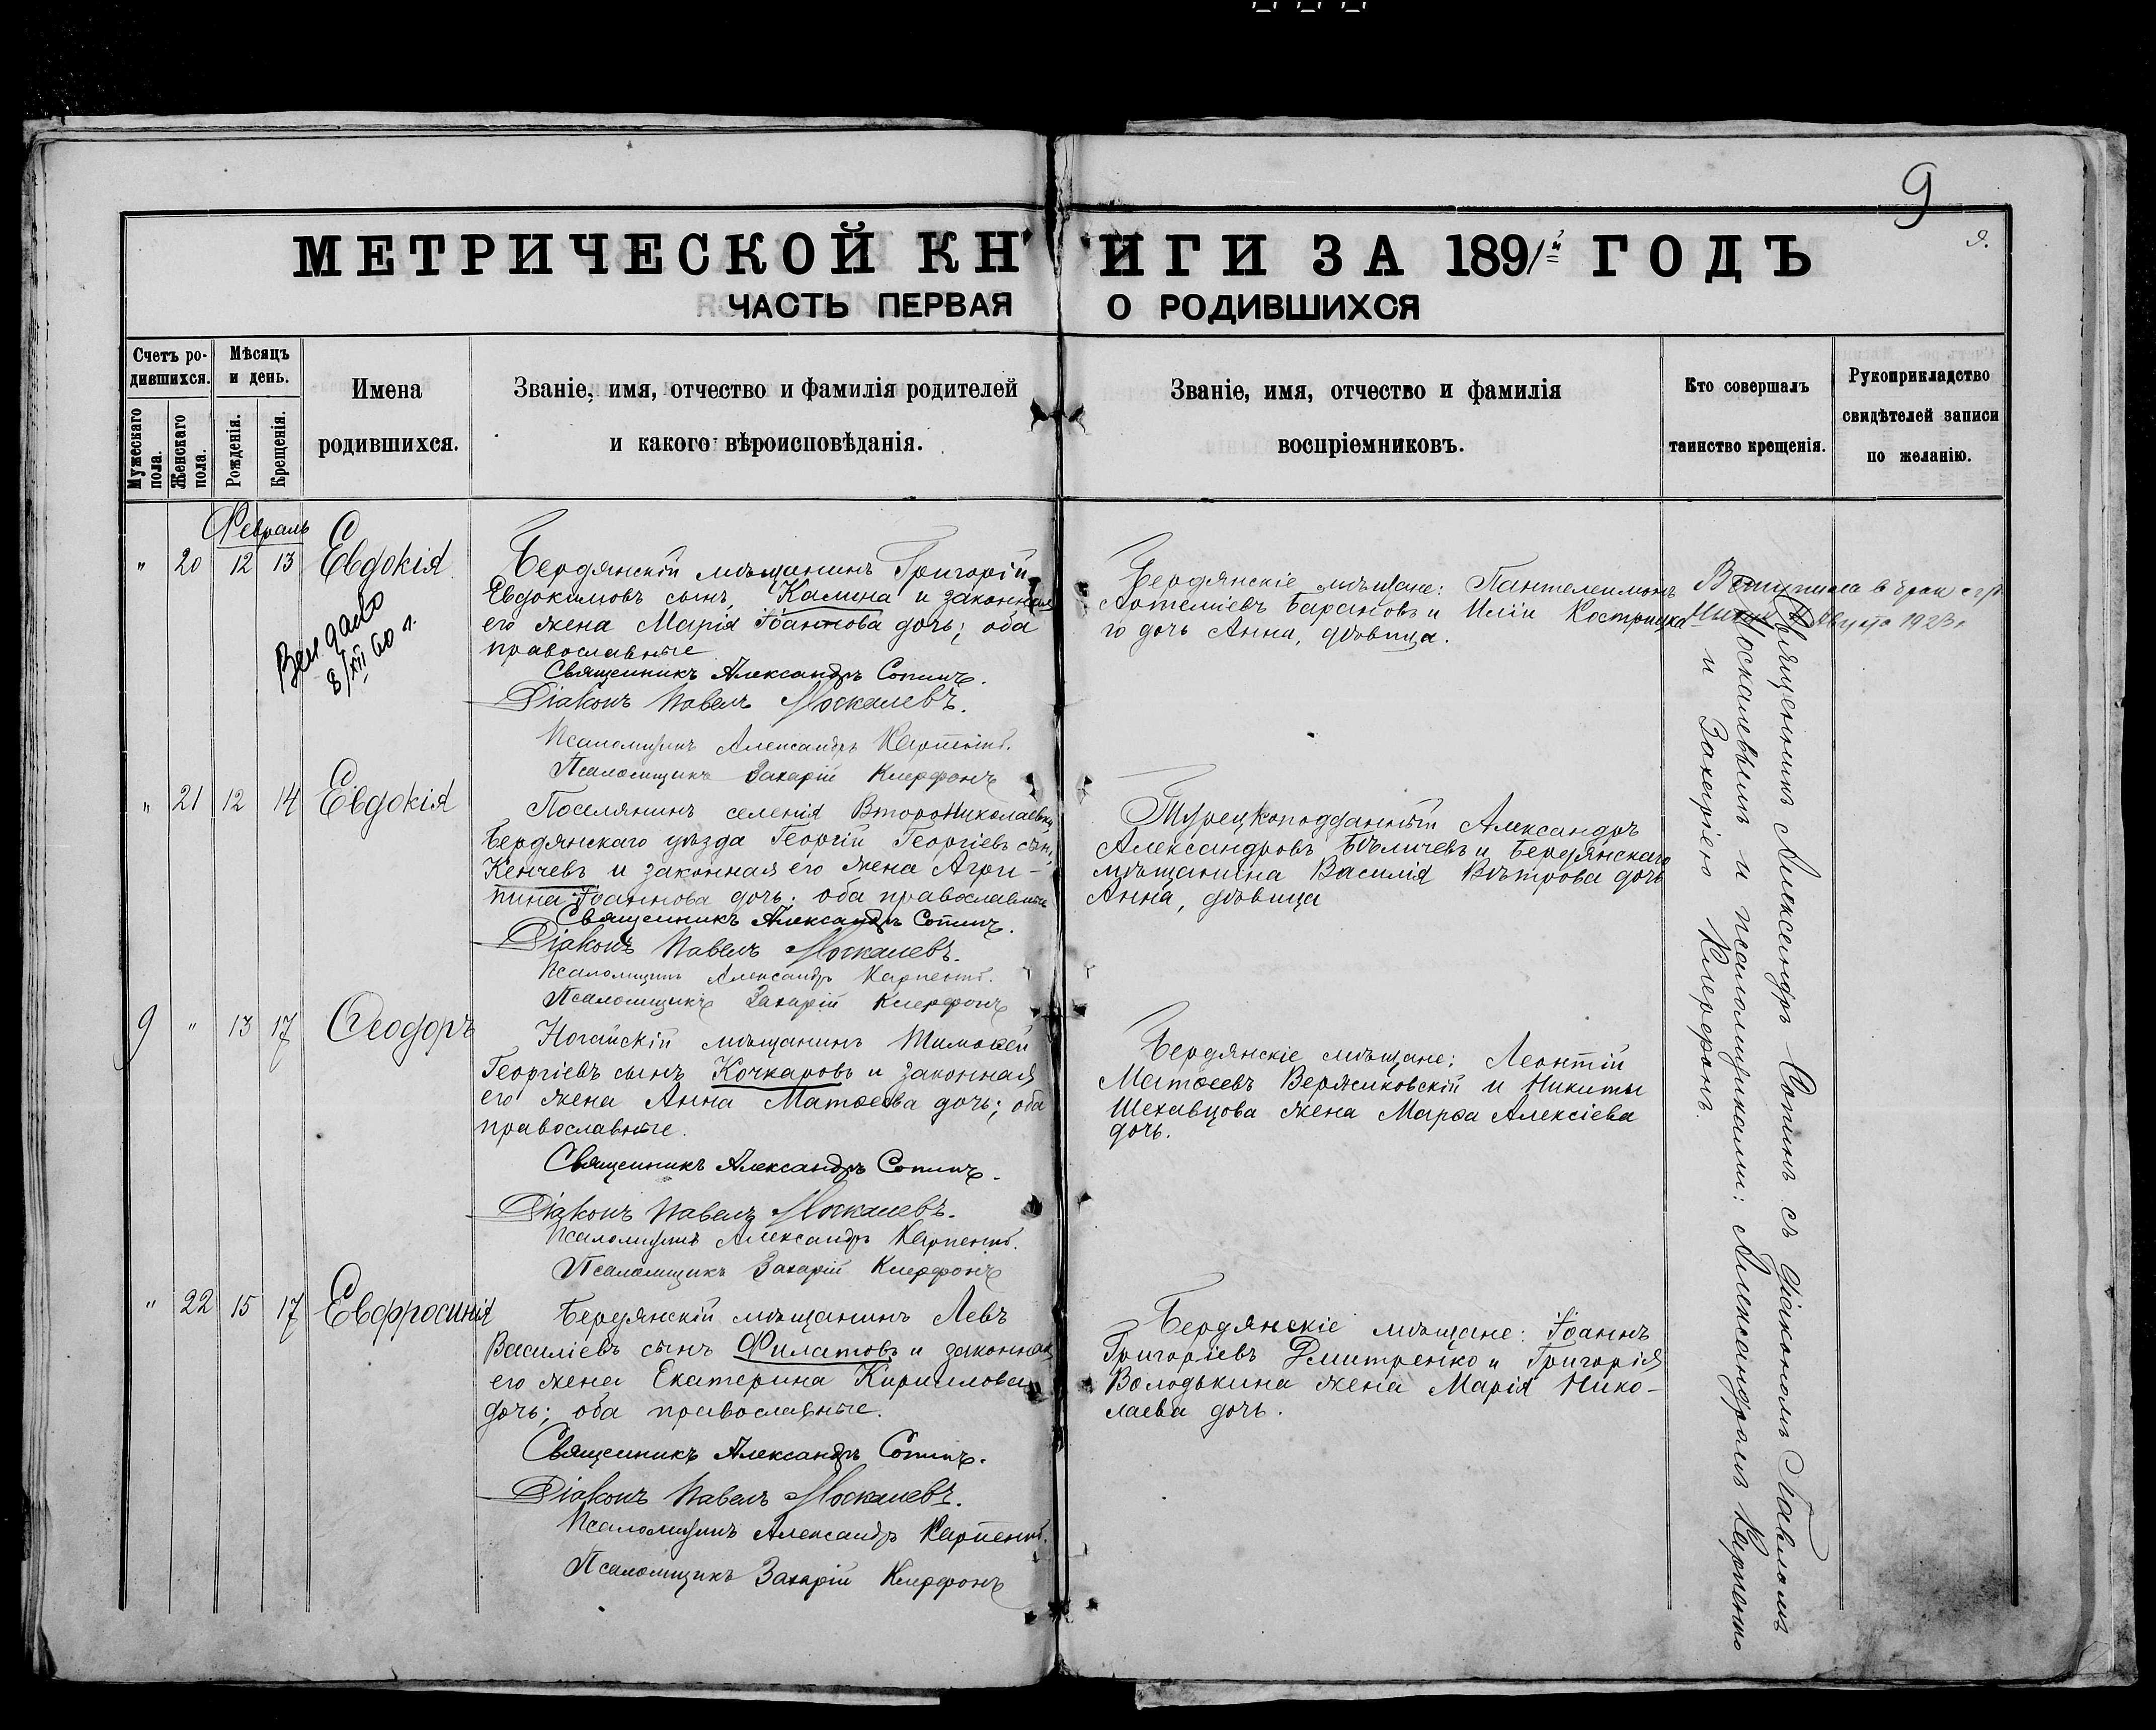 9
9.
МЕТРИЧЕСКОЙ КНИГИ ЗА 1891й ГОДЪ
ЧАСТЬ ПЕРВАЯ О РОДИВШИХСЯ
Счетъ ро-
дившихся.
Мужескаго пола.
Женскаго пола.
Мѣсяцъ
и день.
Рожденія.
Крещенія.
Имена
родившихся.
Званіе, имя, отчество и фамилія родителей
и какого вѣроисповѣданія.
Званіе, имя, отчество и фамилія
воспріемниковъ.
Кто совершалъ
таинство крещенія.
Рукоприкладство
свидѣтелей записи
по желанію.
Февраль
" 20 12 13 Евдокія
8/XII 60 г.
Бердянскій мѣщанинъ Григорій
Евдокимовъ сынъ Калина и законная
его жена Марія Іоаннова дочь; оба
православные
Священникъ Александръ Сопинъ.
Діаконъ Павелъ Москалевъ.
Псаломщикъ Александръ
Псаломщикъ Захарій Клерфонъ
Бердянскіе мѣщане: Пантелеимонъ
Артеміевъ Барановъ и Иліи
го дочь Анна, дѣвица.
Вступила в брак с гр.
Августа 1923 г
" 21 12 14 Евдокія
Поселянинъ селенія Второниколаевки
Бердянскаго уѣзда Георгій Георгіевъ сынъ
Кенчевъ и законная его жена Агри-
пина Іоаннова дочь; оба православные
Священникъ Александръ Сопинъ.
Діаконъ Павелъ Москалевъ.
Псаломщикъ Александръ
Псаломщикъ Захарій Клерфонъ
Турецкоподданный Александръ
Александровъ Бѣличевъ и Бердянскаго
мѣщанина Василія Вѣтрова дочь
Анна, дѣвица
9 " 13 17 Ѳеодоръ
Ногайскій мѣщанинъ Тимоѳей
Георгіевъ сынъ Кочкаровъ и законная
его жена Анна Матѳеева дочь; оба
православные.
Священникъ Александръ Сопинъ.
Діаконъ Павелъ Москалевъ.
Псаломщикъ Александръ
Псаломщикъ Захарій Клерфонъ
Бердянскіе мѣщане: Леонтій
Матѳеевъ Вержиковскій и Никиты
Шехавцова жена Марѳа Алексіева
дочь.
" 22 15 17 Евфросинія
Бердянскій мѣщанинъ Левъ
Василіевъ сынъ Филатовъ и законная
его жена Екатерина Кириллова
дочь; оба православные.
Священникъ Александръ Сопинъ.
Діаконъ Павелъ Москалевъ.
Псаломщикъ Александръ
Псаломщикъ Захарій Клерфонъ
Бердянскіе мѣщане: Іоаннъ
Григоріевъ Дмитренко и Григорія
Володькина жена Марія Нико-
лаева дочь.
Священникъ Александръ Сопинъ съ діакономъ Павломъ
Москалевымъ и псаломщиками: Александромъ
и Захаріею Клерфонъ.